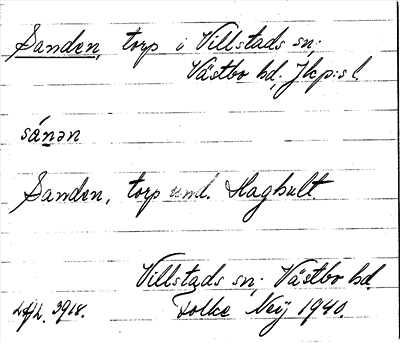 Sanden, torp i Villstads sn;
Västbo hd; Jkp:s l.
sánən
Sanden, torp und. Haghult.
Villstads sn; Västbo hd.
3918. Folke Neij 1940.